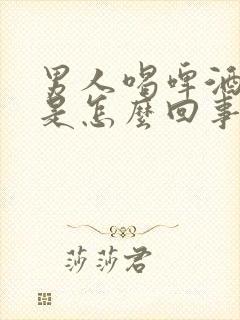 男人喝啤酒
是怎麼回事
莎莎君